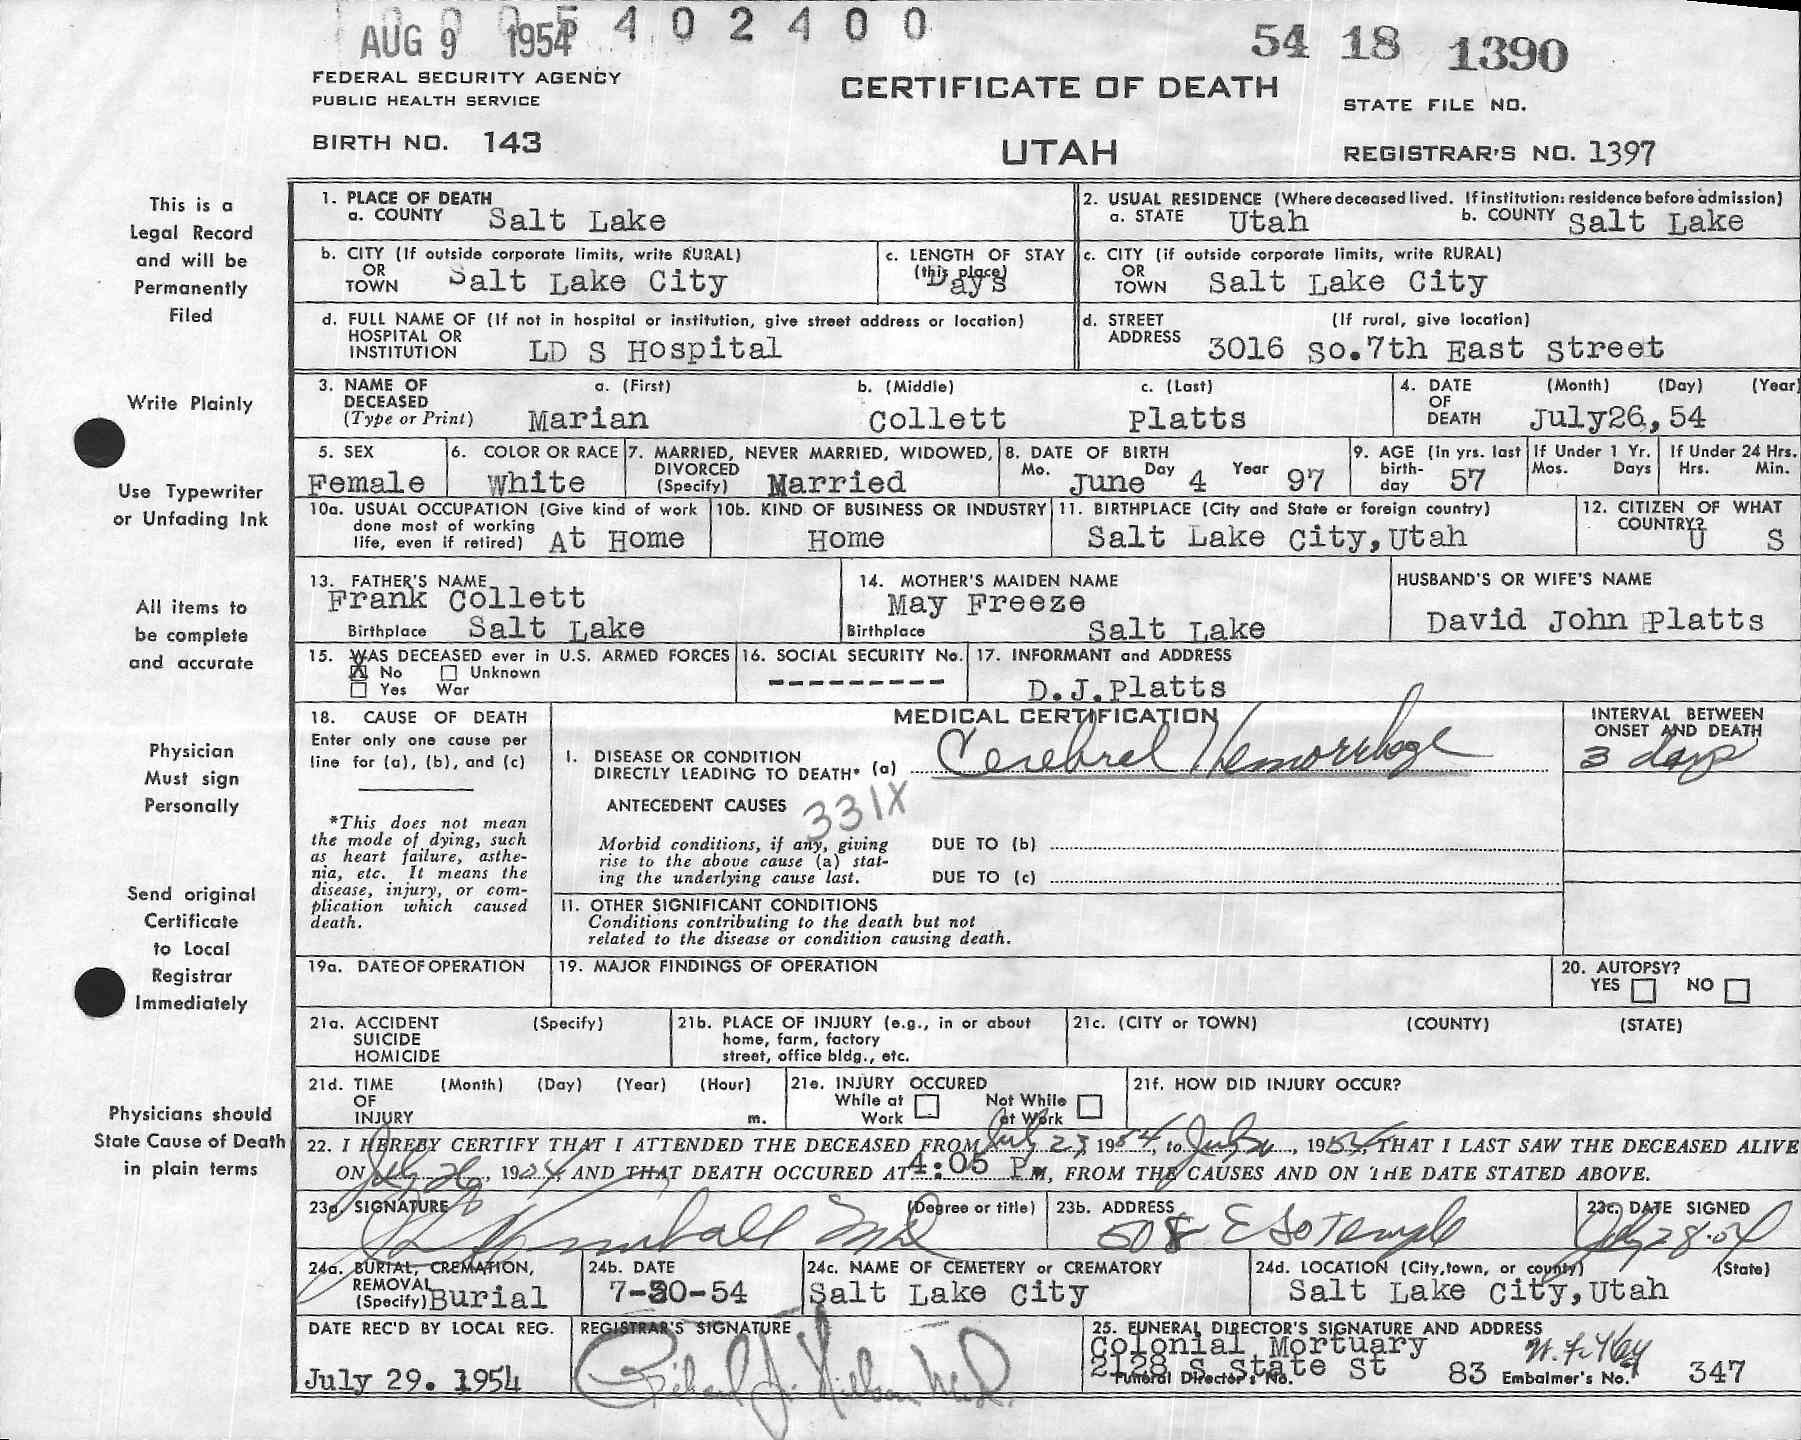 AUG 9 1954 402400
54 18 1390
FEDERAL SECURITY AGENCY
PUBLIC HEALTH SERVICE
CERTIFICATE OF DEATH
STATE FILE NO.
BIRTH NO. 143
UTAH
REGISTRAR'S NO. 1397
This is a
Legal Record
and will be
Permanently
Filed
Write Plainly
Use Typewriter
or Unfading Ink
All items to
be complete
and accurate
Physician
Must sign
Personally
Send original
Certificate
to Local
Registrar
Immediately
Physicians should
State Cause of Death
in plain terms
1. PLACE OF DEATH
a. COUNTY Salt Lake
2. USUAL RESIDENCE (Where deceased lived. If institution: residence before admission)
a. STATE Utah b. COUNTY Salt Lake
b. CITY (If outside corporate limits, write RURAL)
OR
TOWN Salt Lake City
c. LENGTH OF STAY
(this place)
Days
c. CITY (if outside corporate limits, write RURAL)
OR
TOWN Salt Lake City
d. FULL NAME OF (If not in hospital or institution, give street address or location)
HOSPITAL OR
INSTITUTION LD S Hospital
d. STREET (If rural, give location)
ADDRESS 3016 So.7th East Street
3. NAME OF a. (First) b. (Middle) c. (Last)
DECEASED
(Type or Print) Marian Collett Platts
4. DATE (Month) (Day) (Year)
OF
DEATH July26,54
5. SEX
Female
6. COLOR OR RACE
White
7. MARRIED, NEVER MARRIED, WIDOWED,
DIVORCED
(Specify) Married
8. DATE OF BIRTH
Mo. Day Year
June 4 97
9. AGE (In yrs. last
birth-
day 57
If Under 1 Yr.
Mos. Days
If Under 24 Hrs.
Hrs. Min.
10a. USUAL OCCUPATION (Give kind of work
done most of working
life, even if retired) At Home
10b. KIND OF BUSINESS OR INDUSTRY
Home
11. BIRTHPLACE (City and State or foreign country)
Salt Lake City,Utah
12. CITIZEN OF WHAT
COUNTRY?
U S
13. FATHER'S NAME
Frank Collett
Birthplace Salt Lake
14. MOTHER'S MAIDEN NAME
May Freeze
Birthplace Salt Lake
HUSBAND'S OR WIFE'S NAME
David John Platts
15. WAS DECEASED ever in U.S. ARMED FORCES
X No Unknown
Yes War
16. SOCIAL SECURITY No.
---------
17. INFORMANT and ADDRESS
D.J.Platts
18. CAUSE OF DEATH
Enter only one cause per
line for (a), (b), and (c)
*This does not mean
the mode of dying, such
as heart failure, asthe-
nia, etc. It means the
disease, injury, or com-
plication which caused
death.
MEDICAL CERTIFICATION
I. DISEASE OR CONDITION
DIRECTLY LEADING TO DEATH* (a) Cerebral Hemorrhage
ANTECEDENT CAUSES 331X
Morbid conditions, if any, giving
rise to the above cause (a) stat-
ing the underlying cause last.
DUE TO (b)
DUE TO (c)
11. OTHER SIGNIFICANT CONDITIONS
Conditions contributing to the death but not
related to the disease or condition causing death.
INTERVAL BETWEEN
ONSET AND DEATH
3 days
19a. DATE OF OPERATION
19. MAJOR FINDINGS OF OPERATION
20. AUTOPSY?
YES NO
21a. ACCIDENT (Specify)
SUICIDE
HOMICIDE
21b. PLACE OF INJURY (e.g., in or about
home, farm, factory
street, office bldg., etc.
21c. (CITY or TOWN) (COUNTY) (STATE)
21d. TIME (Month) (Day) (Year) (Hour)
OF
INJURY m.
21e. INJURY OCCURED
While at Not While
Work at Work
21f. HOW DID INJURY OCCUR?
22. I HEREBY CERTIFY THAT I ATTENDED THE DECEASED FROM July 23, 1954, to July 26, 1954, THAT I LAST SAW THE DECEASED ALIVE
ON July 26, 1954, AND THAT DEATH OCCURED AT 4:05 P m, FROM THE CAUSES AND ON THE DATE STATED ABOVE.
23a. SIGNATURE (Degree or title)
Kimball MD
23b. ADDRESS
508 E So Temple
23c. DATE SIGNED
July 28-54
24a. BURIAL, CREMATION,
REMOVAL
(Specify) Burial
24b. DATE
7-30-54
24c. NAME OF CEMETERY or CREMATORY
Salt Lake City
24d. LOCATION (City, town, or county) (State)
Salt Lake City,Utah
DATE REC'D BY LOCAL REG.
July 29. 1954
REGISTRAR'S SIGNATURE
25. FUNERAL DIRECTOR'S SIGNATURE AND ADDRESS
Colonial Mortuary
2128 S State St
Funeral Director's No. 83 Embalmer's No. 347